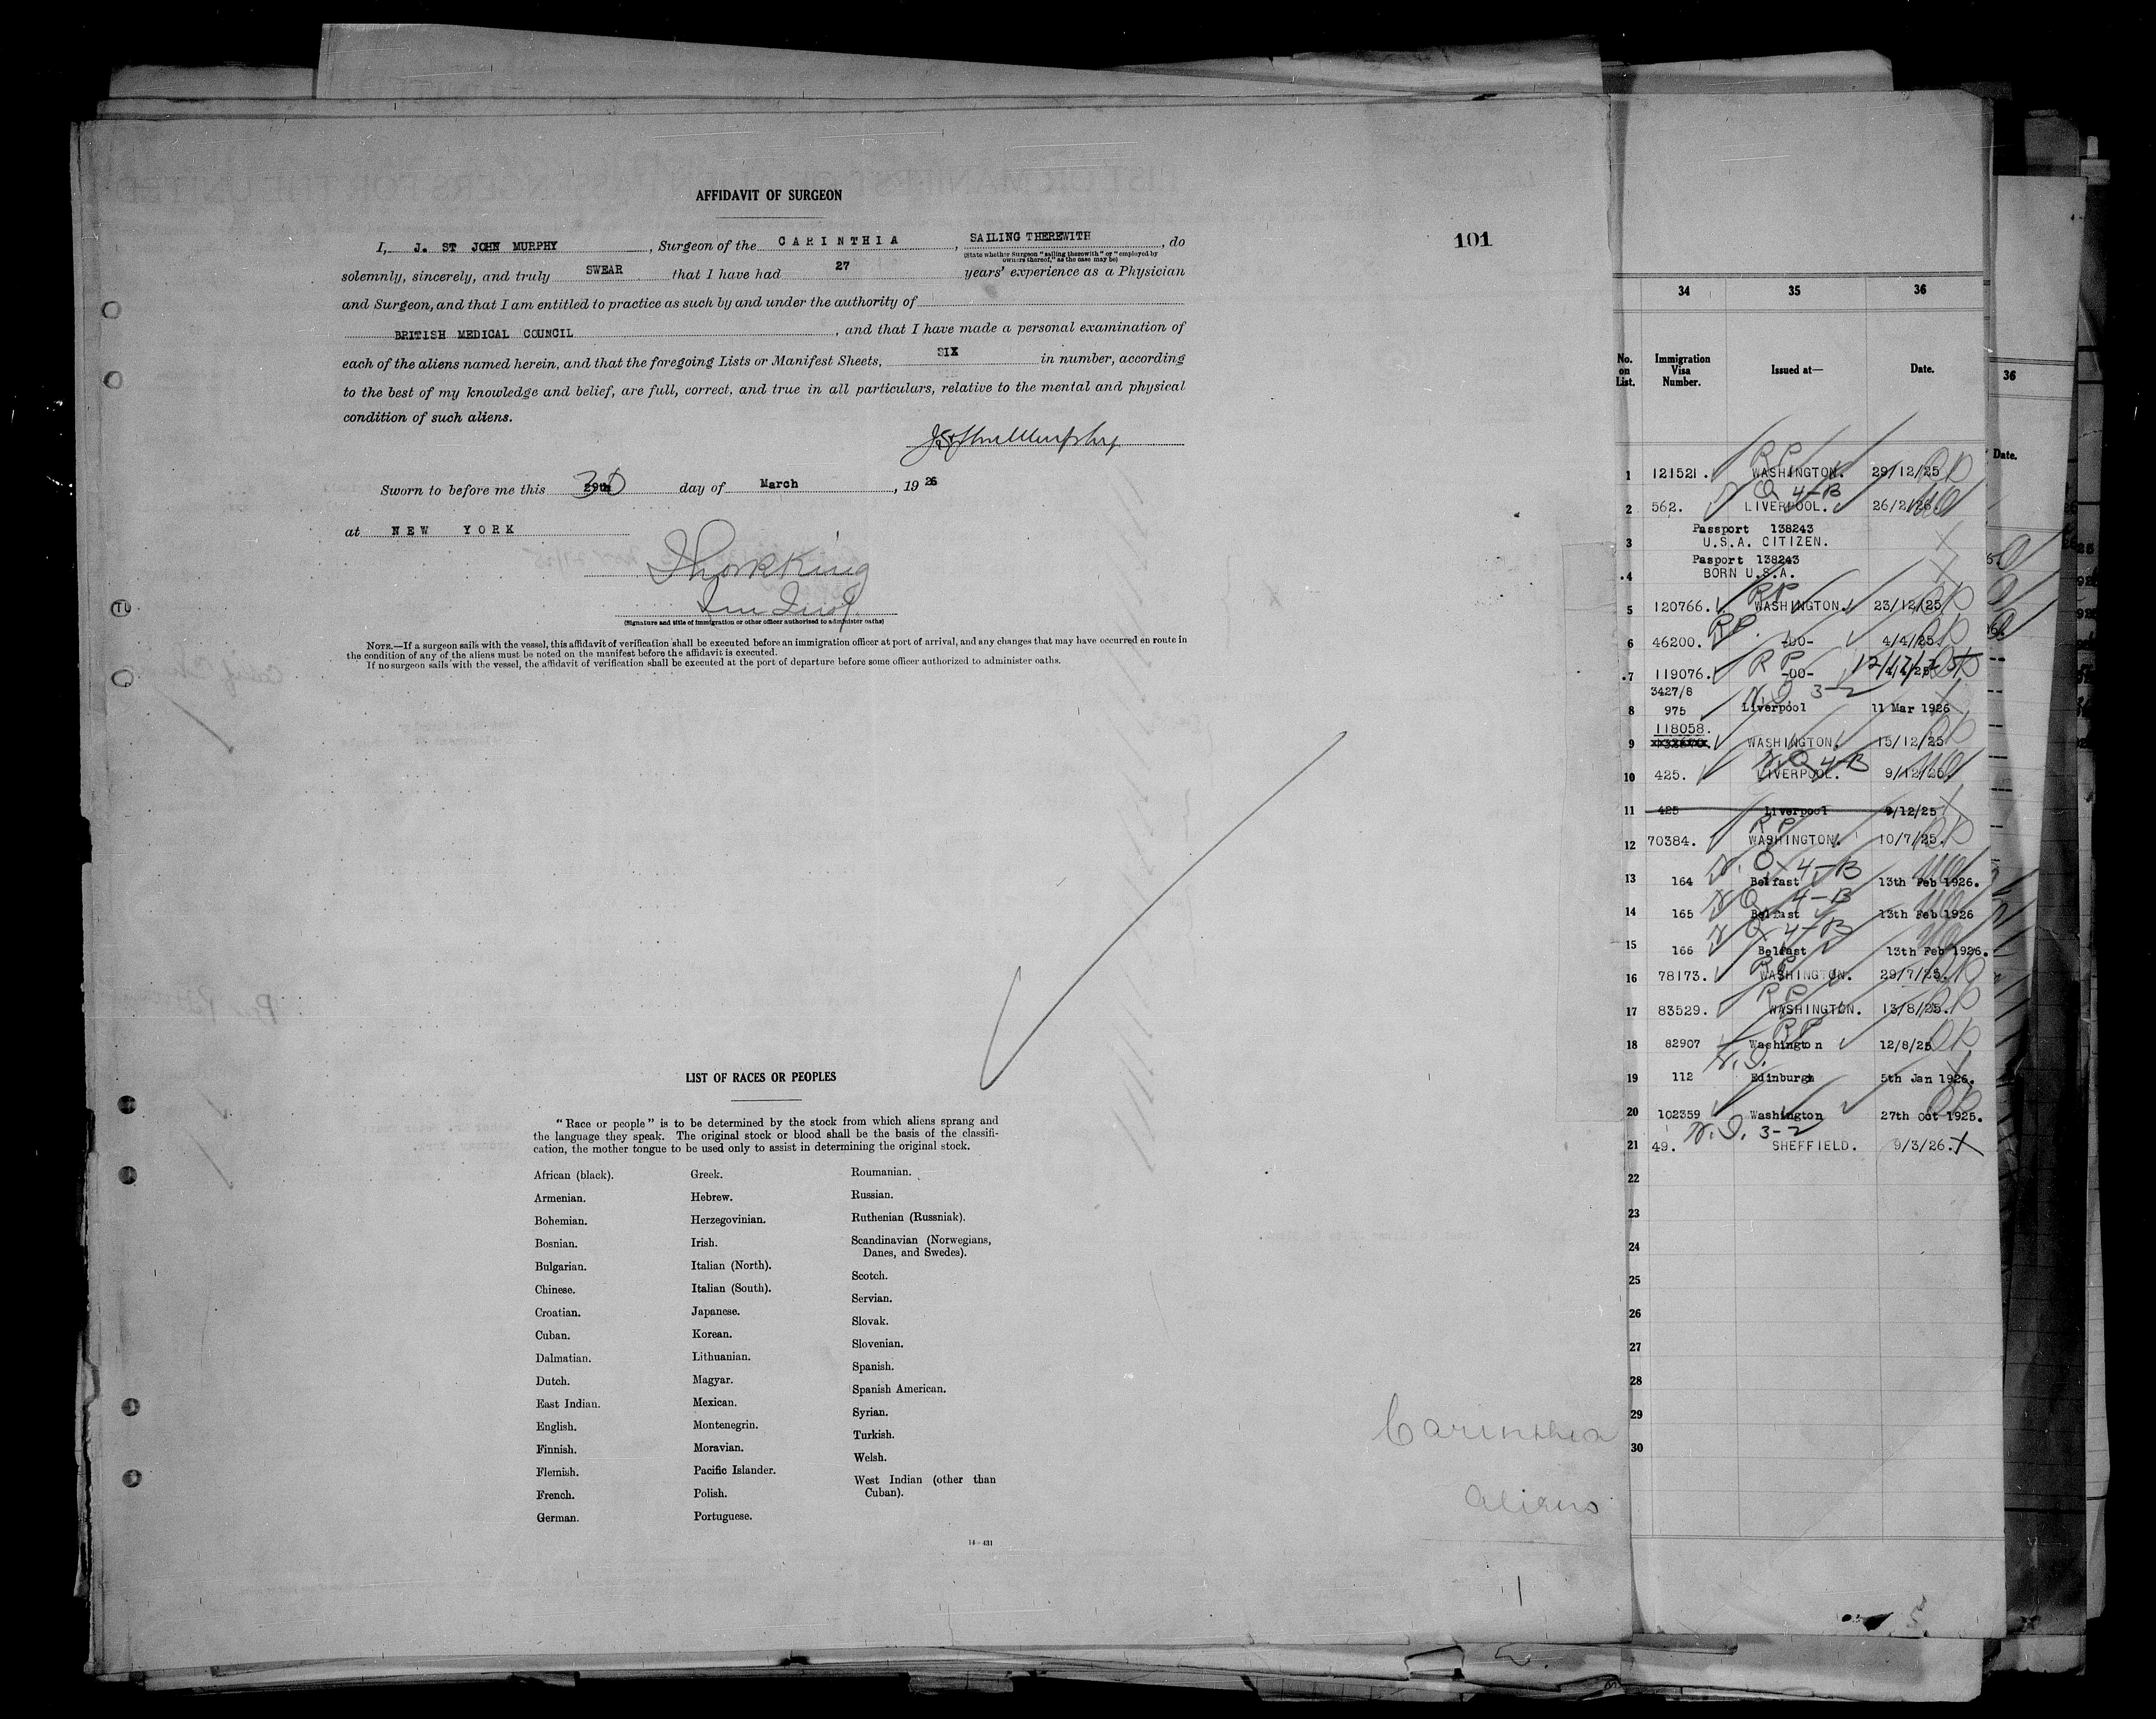 AFFIDAVIT OF SURGEON
101
I, J. ST JOHN MURPHY, Surgeon of the CARINTHIA, SAILING THEREWITH, do
(State whether Surgeon "sailing therewith" or "employed by
owners thereof," as the case may be)
solemnly, sincerely, and truly SWEAR that I have had 27 years' experience as a Physician
and Surgeon, and that I am entitled to practice as such by and under the authority of
BRITISH MEDICAL COUNCIL, and that I have made a personal examination of
each of the aliens named herein, and that the foregoing Lists or Manifest Sheets, SIX in number, according
to the best of my knowledge and belief, are full, correct, and true in all particulars, relative to the mental and physical
condition of such aliens.
Sworn to before me this 29th 30 day of March, 1926
at NEW YORK
(Signature and title of immigration or other officer authorized to administer oaths)
NOTE.—If a surgeon sails with the vessel, this affidavit of verification shall be executed before an immigration officer at port of arrival, and any changes that may have occurred en route in
the condition of any of the aliens must be noted on the manifest before the affidavit is executed.
If no surgeon sails with the vessel, the affidavit of verification shall be executed at the port of departure before some officer authorized to administer oaths.
LIST OF RACES OR PEOPLES
"Race or people" is to be determined by the stock from which aliens sprang and
the language they speak. The original stock or blood shall be the basis of the classifi-
cation, the mother tongue to be used only to assist in determining the original stock.
African (black).
Armenian.
Bohemian.
Bosnian.
Bulgarian.
Chinese.
Croatian.
Cuban.
Dalmatian.
Dutch.
East Indian.
English.
Finnish.
Flemish.
French.
German.
Greek.
Hebrew.
Herzegovinian.
Irish.
Italian (North).
Italian (South).
Japanese.
Korean.
Lithuanian.
Magyar.
Mexican.
Montenegrin.
Moravian.
Pacific Islander.
Polish.
Portuguese.
Roumanian.
Russian.
Ruthenian (Russniak).
Scandinavian (Norwegians,
Danes, and Swedes).
Scotch.
Servian.
Slovak.
Slovenian.
Spanish.
Spanish American.
Syrian.
Turkish.
Welsh.
West Indian (other than
Cuban).
14—431
Carinthia
Aliens
1
34 35 36
No. on List. Immigration Visa Number. Issued at— Date.
1 121521. RP WASHINGTON. 29/12/25
2 562. N Q 4-B LIVERPOOL. 26/2/26.
3 Passport 138243
U.S.A. CITIZEN.
4 Pasport 138243
BORN U.S.A.
5 120766. RP WASHINGTON. 23/12/25
6 46200. RP. -DO- 4/4/25
7 119076. RP -DO- 4/4/25 12/17/25
8 3427/8
975 N.Q. 3-2 Liverpool 11 Mar 1926
9 118058. WASHINGTON. 15/12/25
10 425. N.Q 4-B LIVERPOOL. 9/12/25
11 425 Liverpool 9/12/25
12 70384. RP WASHINGTON. 10/7/25.
13 164 N.Q 4-B Belfast 13th Feb 1926.
14 165 N Q 4-B Belfast 13th Feb 1926
15 166 N Q 4-B Belfast 13th Feb 1926.
16 78173. RP WASHINGTON. 29/7/25.
17 83529. RP WASHINGTON. 13/8/25.
18 82907 RP Washington 12/8/25
19 112 N.Q. Edinburgh 5th Jan 1926.
20 102359 Washington 27th Oct 1925.
21 49. N.Q. 3-2 SHEFFIELD. 9/3/26.
22
23
24
25
26
27
28
29
30
36
Date.